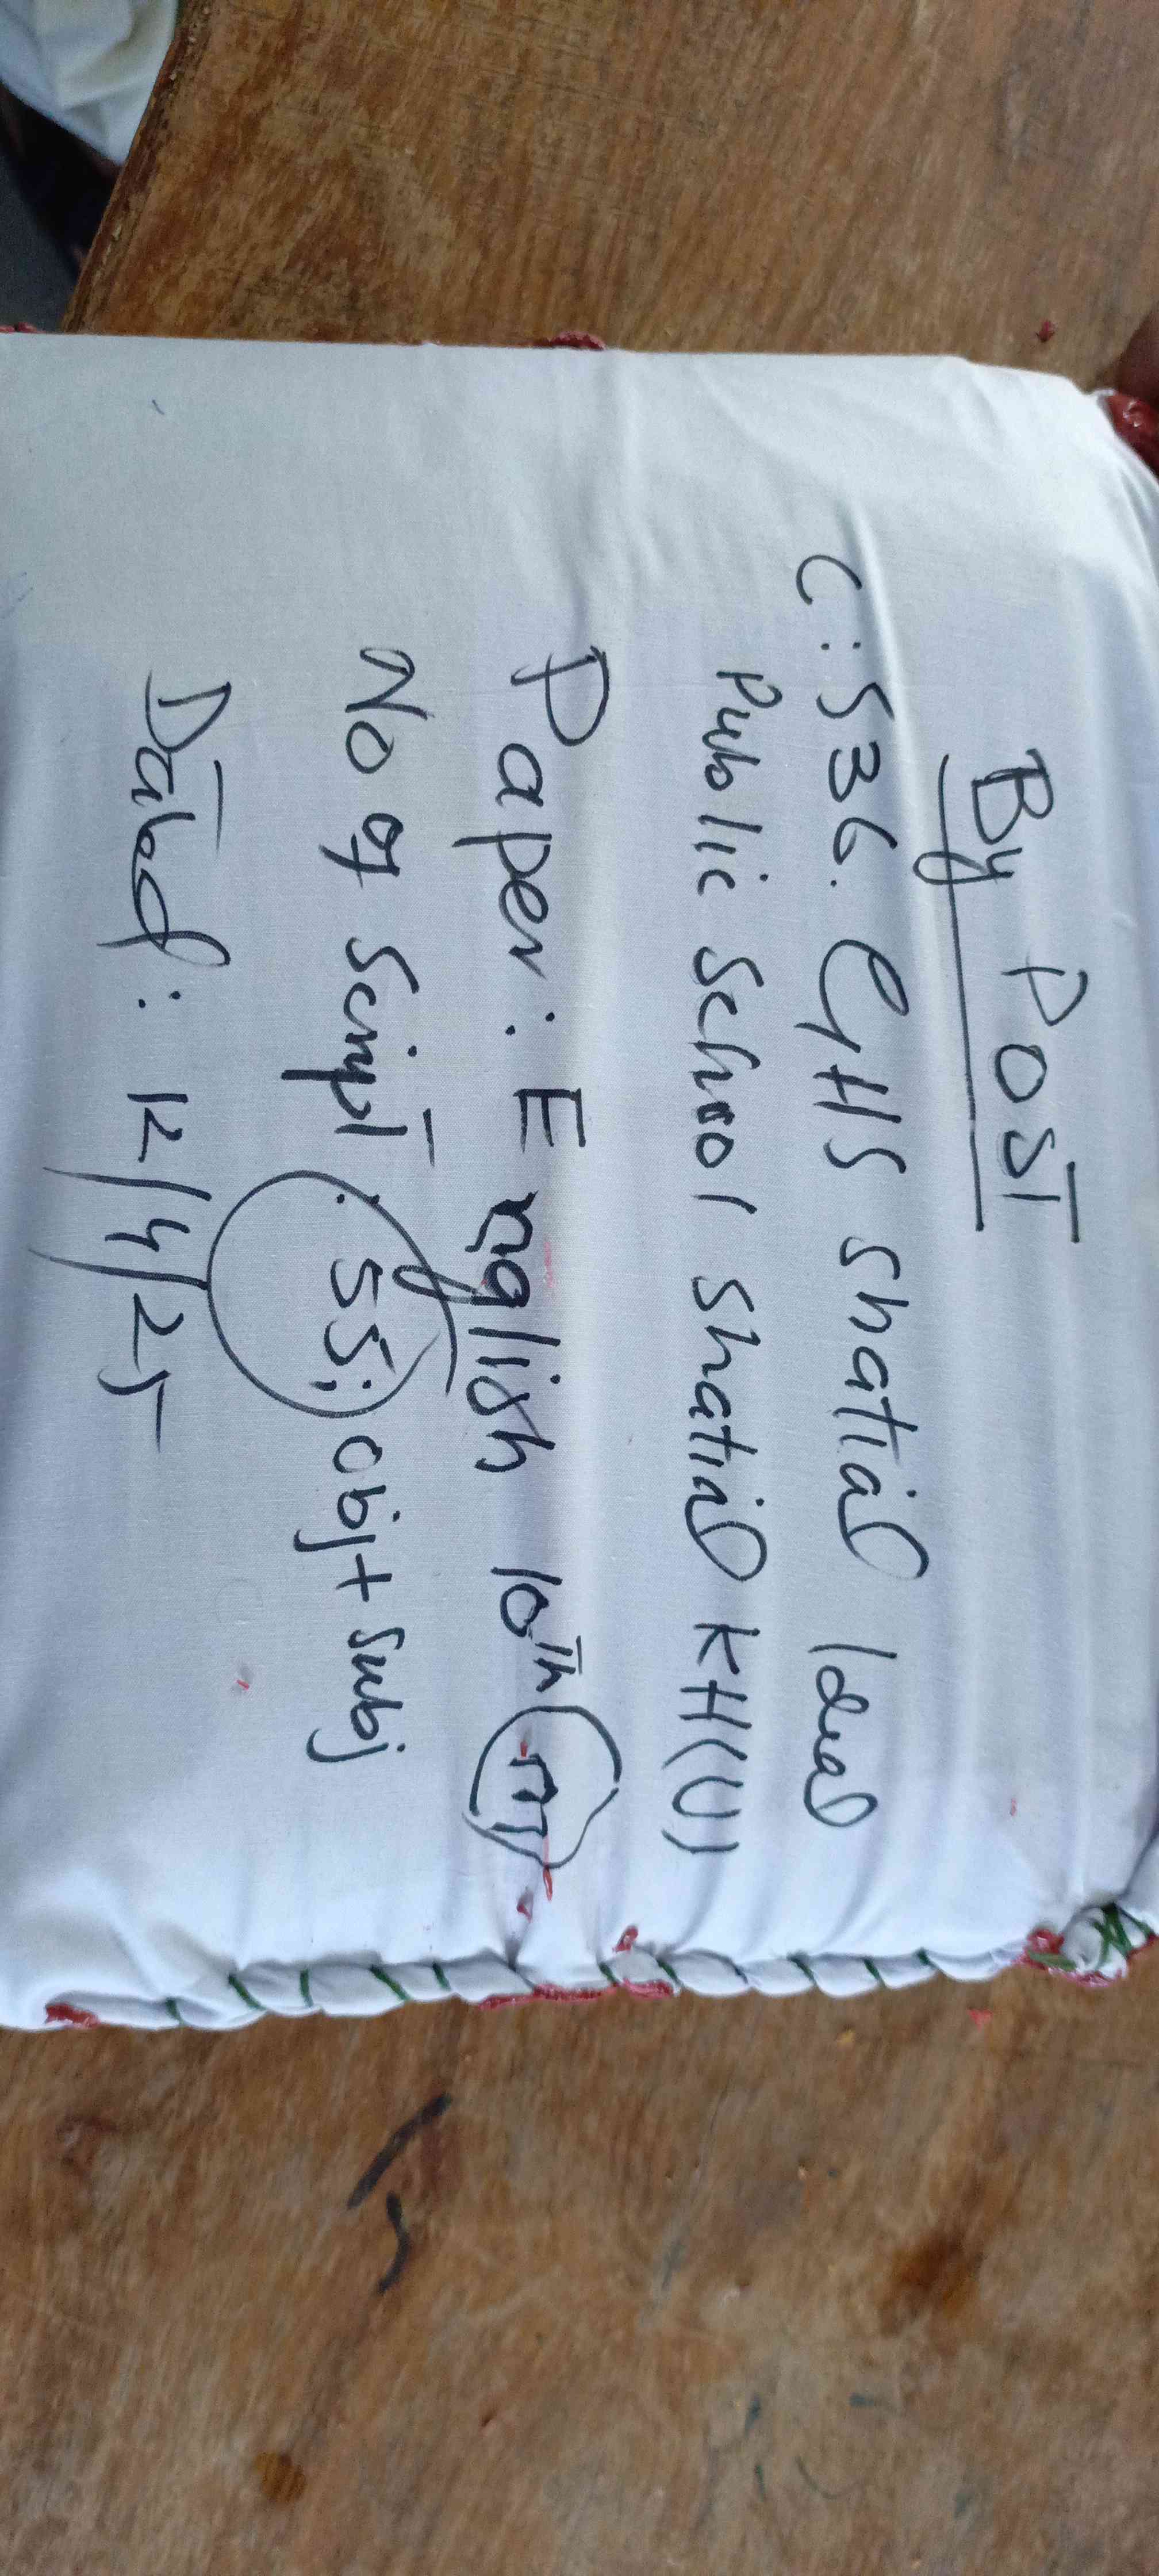 By Post
C: 536. GHS shatial Ideal
Public School shatial KH(U)
Paper: English 10th M
No of Script: 55: obj + Subj
Dated: 12/4/25